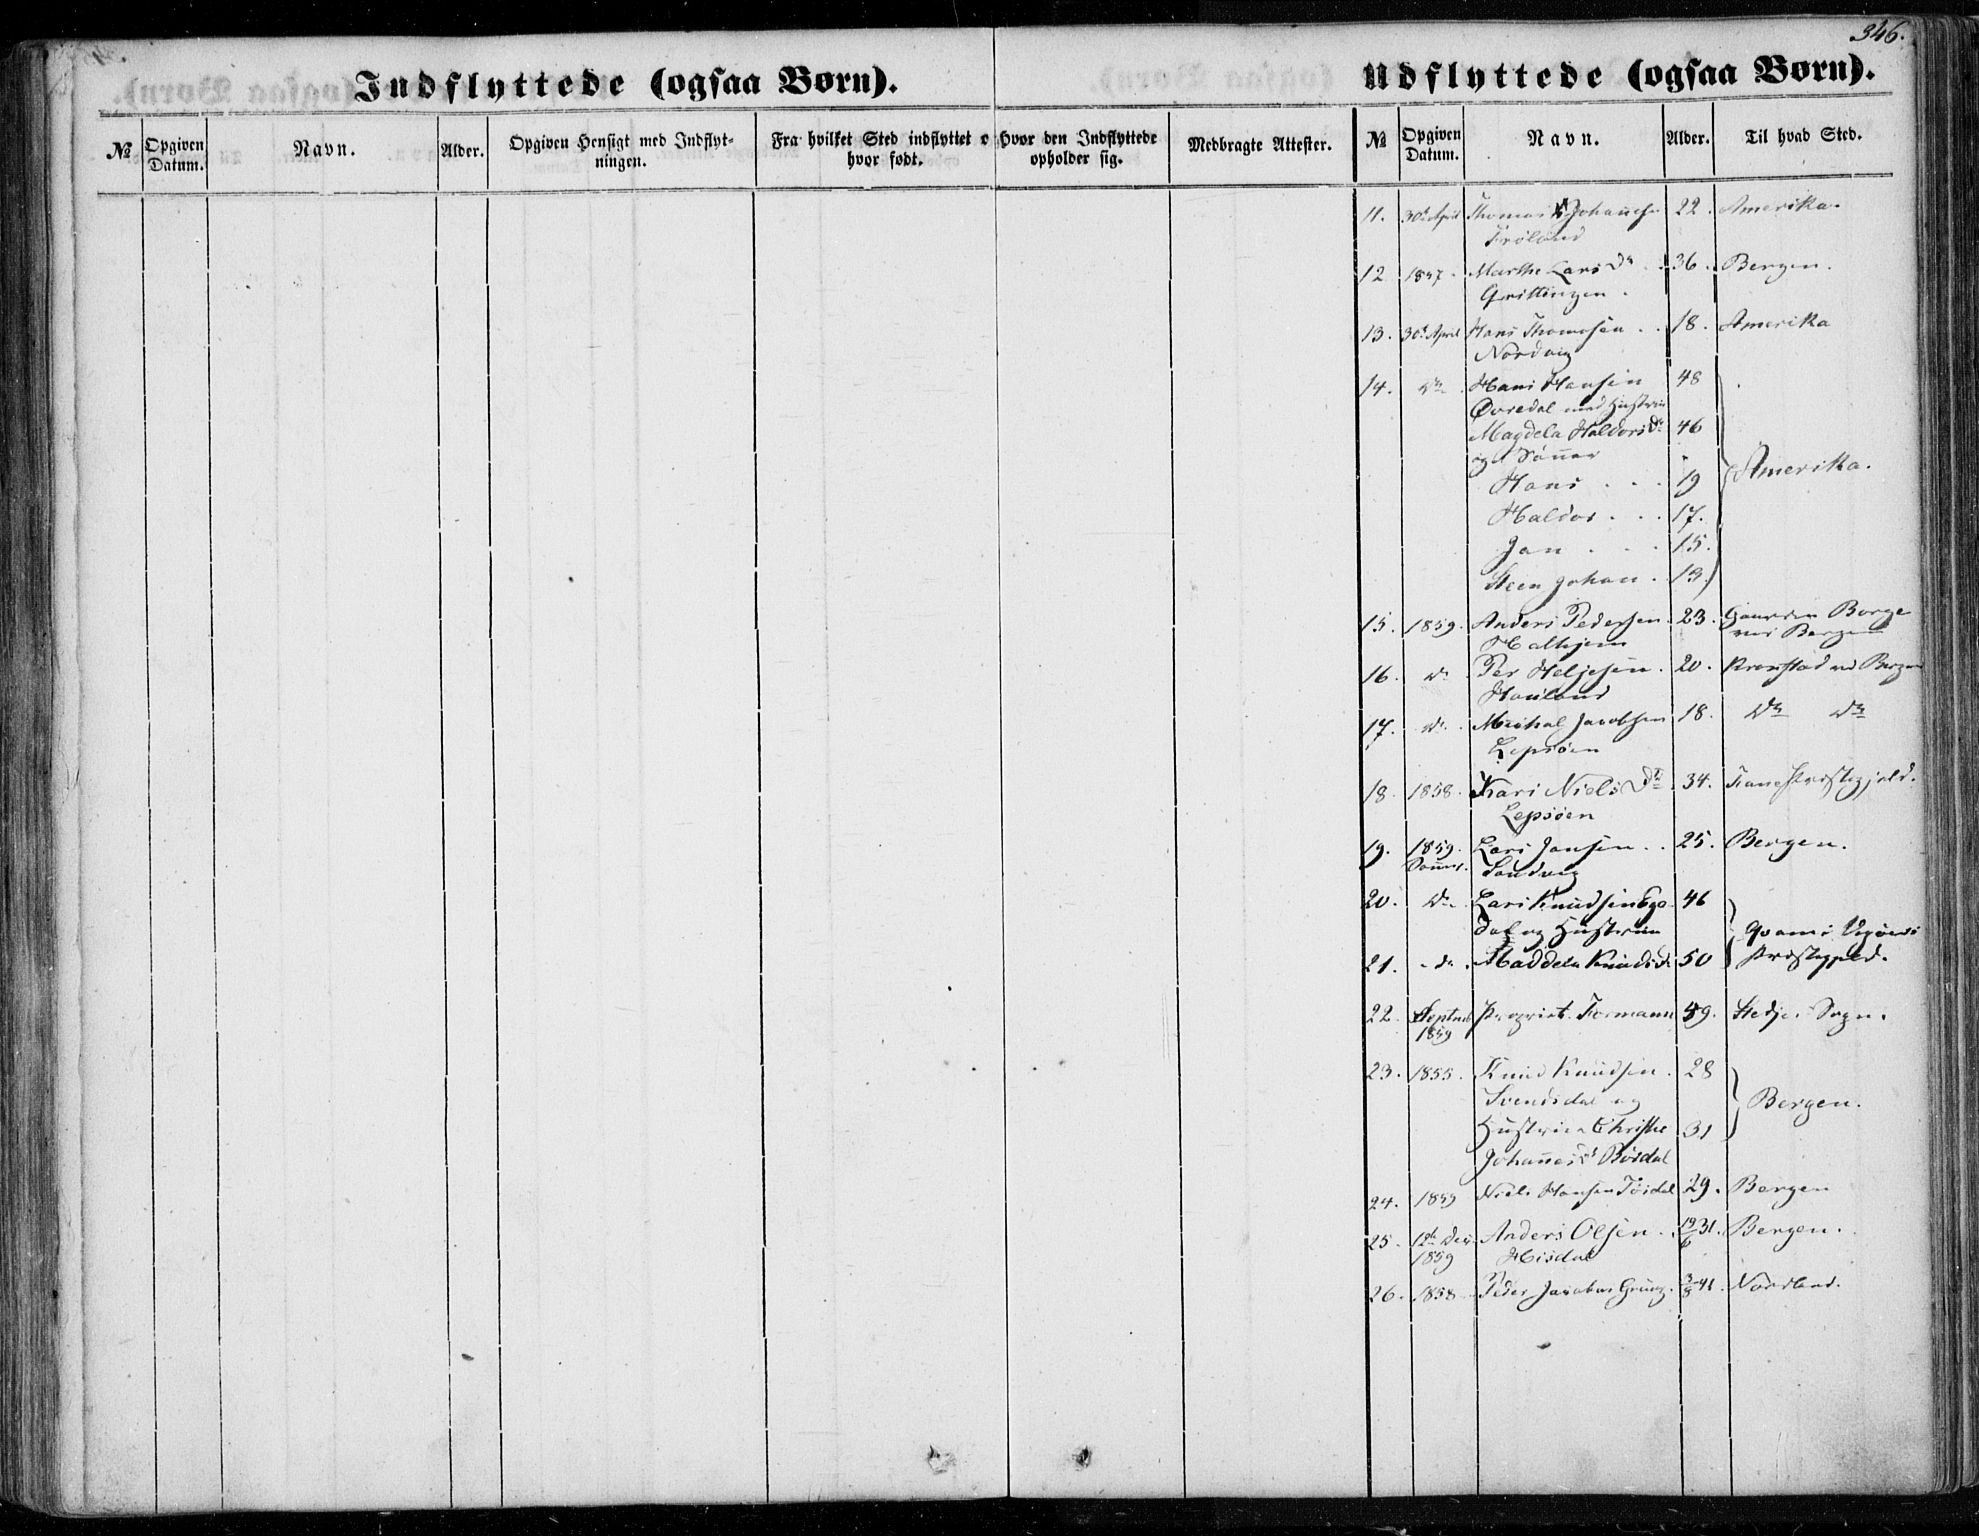 346.
Indflyttede (ogsaa Børn).
Udflyttede (ogsaa Børn).
№ Opgiven Datum. Navn. Alder. Opgiven Hensigt med Indflyt-ningen. Fra hvilket Sted indflyttet o hvor født. Hvor den Indflyttede opholder sig. Medbragte Attester.
№ Opgiven Datum. Navn. Alder. Til hvad Sted.
11. 30te April Thomas Johannesen 22. Amerika.
Frøland
12. 1857. Marthe Larsdr 36. Bergen.
13. 30te April Hans Thomasen 18. Amerika
Nordvig
14. do Hans Hansen 48
Øvredal med Hustrue
Magdela Haldorsdr 46
og Sønner
Hans 19 Amerika.
Haldor 17.
Jan 15.
Steen Johan 13.
15. 1859. Anders Pedersen 23. Gaarden Borge
Halhjem ved Bergen
16. do Per Heljesen 20. Kronstad ved Bergen
Hauland
17. do Michal Jacobsen 18. do do
Lepsøen
18. 1858. Kari Nielsdr 34. Fane Præstegjeld.
Lepsøen
19. 1859. Lars Jansen 25. Bergen.
Sommer. Sandvig
20. do Lars Knudsen 46
dal og Hustrue Qvam i Vigørs
21. do Maddela Knudsdr 50 Præstegjeld.
22. Septmb Propriet. Formann 59. Sogn.
1859
23. 1855. Knud Knudsen 28
Svendsdal og Bergen.
Hustrue Christie 31
Johannesdr Bøsdal
24. 1859 Niels Hansen Tøsdal 29. Bergen
25. 12te Dec. Anders Olsen 19/6 31. Bergen.
1859 Hisdal
26. 1858 Peder Jacobus Grung 3/8 41. Nordland.